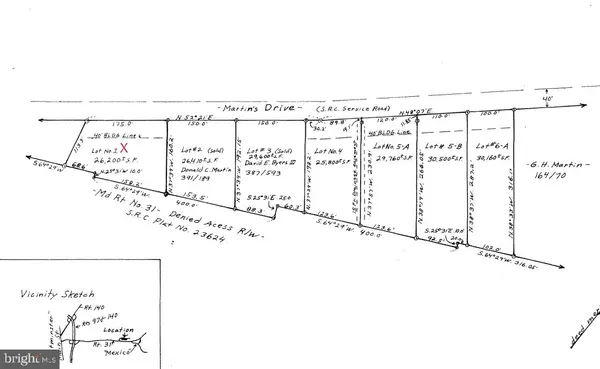 -Martin's Drive- (S.R.C. Service Road)
40'
N 52°21'E
N 48°07'E
175.0'
150.0'
150.0'
120.0'
110.0'
100.0'
40' BLDG Line
40' BLDG Line
Lot No. 1 X
26,200± S.F.
Lot #2 (sold)
26,410± S.F.
Donald C. Martin
391/189
Lot #3 (Sold)
29,600± S.F.
David E. Byers III
387/593
Lot No. 4
25,800± S.F.
Lot No. 5-A
29,760± S.F.
Lot # 5-B
30,500± S.F.
Lot #6-A
30,160± S.F.
-G.H. Martin-
164/70
S.64°29'W.
68.6
N.25°31'W. 10.0'
158.2'
S.64°29'W.
153.5'
400.0'
88.3'
S.25°31'E. 25.0
60.3'
123.6'
S.64°29'W.
400.0'
123.6'
S.25°31'E.
102.0'
S.64°29'W. 316.05'
-Md Rt No. 31- Denied Acess R/W-
S.R.C. Plat No. 23624
Vicinity Sketch
Rt. 140
Location
Rt. 31
"Mexico"
bright MLS